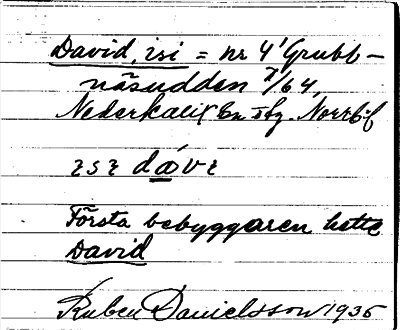 David, isi = nr 4' Grubb-
näsudden 7/64,
Nederkalix sn
ɪsɪ davɪ
Första bebyggaren hette
David
Ruben Danielsson 1935